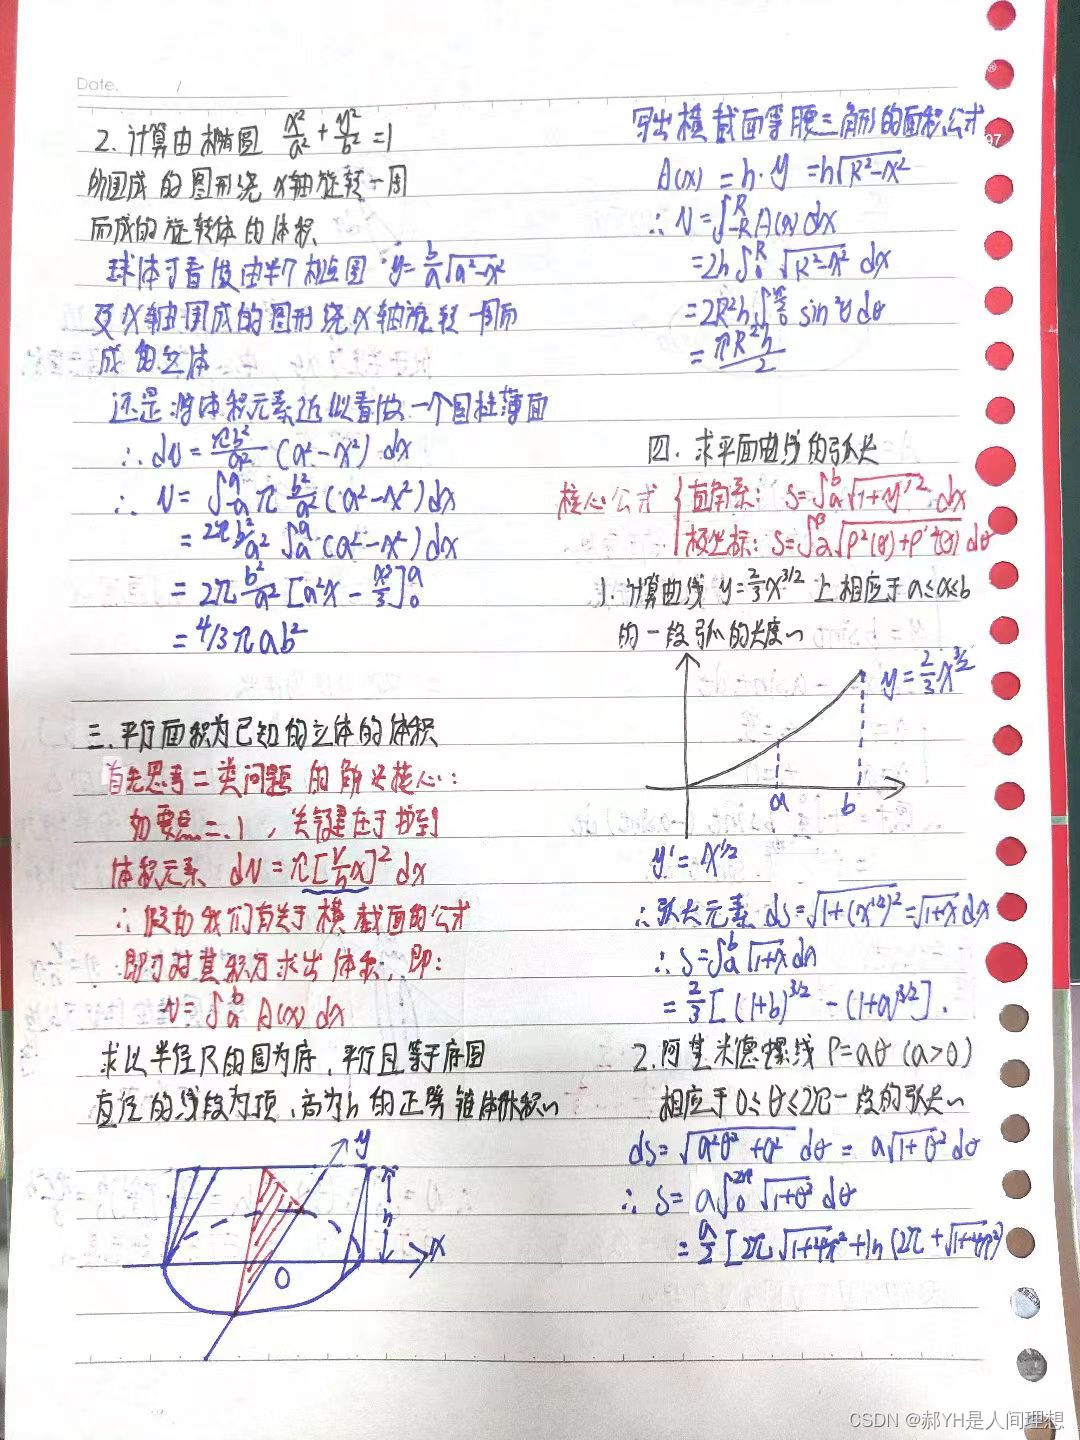 Date. /
2. 计算由椭圆 x²/a² + y²/b² = 1
所围成的图形绕x轴旋转一周
而成的旋转体的体积
球体可看做由半个椭圆 y = b/a √(a²-x²)
及x轴围成的图形绕x轴旋转一周而
成的立体
还是将体积元素近似看做一个圆柱薄面
∴ dV = πb²/a² (a²-x²) dx
∴ V = ∫_{-a}^{a} π b²/a² (a²-x²) dx
= 2π b²/a² ∫_a^a (a²-x²) dx
= 2π b²/a² [a²x - x³/3]_0^a
= 4/3 π a b²
三. 平行面积为已知的立体的体积
首先思考二类问题的解决核心:
如要点二.1, 关键在于找到
体积元素 dV = π[r/h x]² dx
∴ 假如我们有关于横截面的公式
即可对其积分求出体积, 即:
V = ∫_a^b A(x) dx
求以半径R的圆为底, 平行且等于底圆
直径的线段为顶, 高为h的正劈锥体体积~
y
h
x
O
写出横截面等腰三角形的面积公式
97
A(x) = h·y = h√(R²-x²)
∴ V = ∫_{-R}^{R} A(x) dx
= 2h ∫_0^R √(R²-x²) dx
= 2R²h ∫_0^{π/2} sin²θ dθ
= πR²h/2
四. 求平面曲线的弧长
核心公式 { 直角系: S = ∫_a^b √(1+y'²) dx
极坐标: S = ∫_α^β √(ρ²(θ)+ρ'²(θ)) dθ
1. 计算曲线 y = 2/3 x^{3/2} 上相应于 a≤x≤b
的一段弧的长度~
y = 2/3 x^{3/2}
a b
y' = x^{1/2}
∴ 弧长元素 ds = √(1+(x^{1/2})²) = √(1+x) dx
∴ S = ∫_a^b √(1+x) dx
= 2/3 [(1+b)^{3/2} - (1+a)^{3/2}].
2. 阿基米德螺线 ρ = aθ (a>0)
相应于 0≤θ≤2π 一段的弧长~
ds = √(a²θ²+a²) dθ = a√(1+θ²) dθ
∴ S = a ∫_0^{2π} √(1+θ²) dθ
= a/2 [2π √(1+4π²) + ln (2π + √(1+4π²)
CSDN @郝YH是人间理想